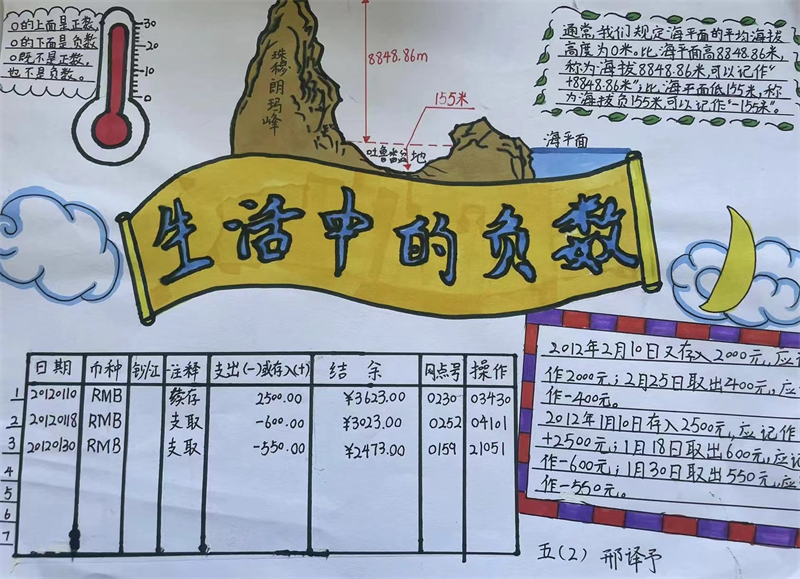 0的上面是正数,
0的下面是负数
0既不是正数,
也不是负数。
30
20
10
0
珠穆朗玛峰
8848.86m
155米
吐鲁番盆地
海平面
通常,我们规定海平面的平均海拔
高度为0米。比海平面高8848.86米,
称为海拔8848.86米,可以记作“
+8848.86米”;比海平面低155米,称
为海拔负155米可以记作“-155米”。
生活中的负数
日期 币种 钞/汇 注释 支出(-)或存入(+) 结余 网点号 操作
1 20120110 RMB 续存 2500.00 ¥3623.00 0230 03430
2 20120118 RMB 支取 -600.00 ¥3023.00 0252 04101
3 20120130 RMB 支取 -550.00 ¥2473.00 0159 21051
4
5
6
7
2012年2月10日又存入2000元,应
作2000元;2月25日取出400元,应
作-400元。
2012年1月10日存入2500元,应记作
+2500元;1月18日取出600元,应记
作-600元;1月30日取出550元,应
作-550元。
五(2) 邢译予